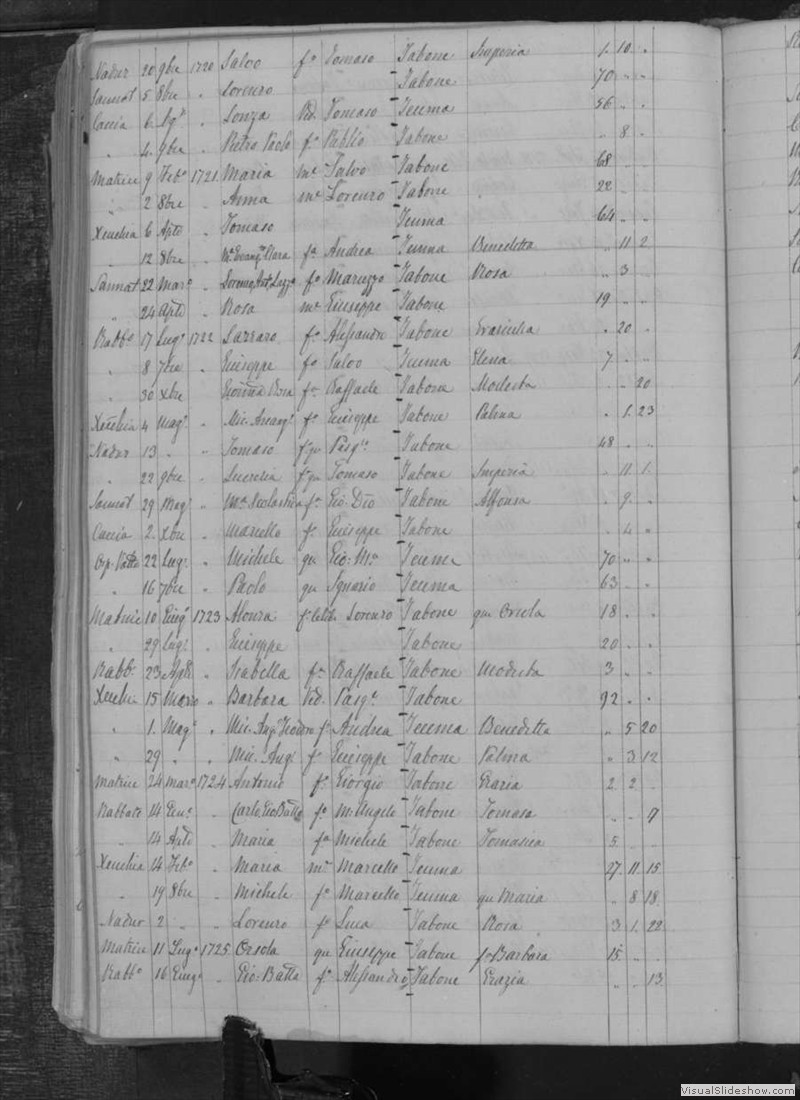 Nadur 20 9bre 1720 Salvo fo Tomaso Tabone Imperia 1. 10. "
Sannat 5 8bre " Lorenzo Tabone 70 " "
Caccia 6 Ag.o " Vid. Tomaso Teuma 56 " "
" 4 9bre " Pietro Paolo fo Publio Tabone " 8 "
Matrice 9 Feb.o 1721 Maria me Salvo Tabone 68 " "
" 2 8bre " Anna me Lorenzo Tabone 22 " "
Xeuchia 6 Aple " Tomaso Teuma 64 " "
" 12 8bre " Clara fa Andrea Teuma Benedetta " 11 2
Sannat 22 Marzo " fo Maruzzo Tabone Rosa " 3 "
" 24 Aple " Rosa me Giuseppe Tabone 19 " "
Rabb.o 17 Lug.o 1722 Lazzaro fo Alessandro Tabone " 20 "
" 8 7bre " Giuseppe fo Salvo Teuma Elena 7 " "
" 30 xbre " Rosa fa Raffaele Tabone Modesta " " 20
Xeuchia 4 Mag.o " Mic. Arcang.o fo Giuseppe Tabone Palma " 1. 23
Nadur 13 " " Tomaso fo qu Pasq.le Tabone 48 " "
" 22 9bre " Lucrezia fa qu Tomaso Tabone Imperia " 11 1.
Sannat 29 Mag.o " Ma Scolastica fa Gio: Tabone Alfonsa " 9 "
Caccia 2 xbre " Marcello fo Giuseppe Tabone " 4 "
22 Lug.o " Michele qu Gio: Ma Teuma 70 " "
" 16 7bre " Paolo qu Ignazio Teuma 63 " "
Matrice 10 Giug.o 1723 Lorenzo Tabone qm Orsola 18 " "
" 29 Lug.o " Giuseppe Tabone 20 " "
Rabb.o 23 Aple " Isabella fa Raffaele Tabone Modesta 3 " "
Xeuchia 15 Marzo " Barbara Vid. Pasq.e Tabone 92 " "
" 1. Mag.o " Mic. Ang.o fo Andrea Teuma Benedetta " 5 20
" 29 " " Mic. Ang.o fo Giuseppe Tabone Palma " 3 12
Matrice 24 Marzo 1724 Antonio fo Giorgio Tabone Grazia 2 2 "
Rabbato 14 Gen.o " Carlo Gio Batta fo M. Angelo Tabone Tomasa " " 7
" 14 Aple " Maria fa Michele Tabone 5 " "
Xeuchia 14 Feb.o " Maria me Marcello Teuma 27 11 15
" 19 8bre " Michele fo Marcello Teuma qm Maria " 8 18
Nadur 2 " " Lorenzo fo Luca Tabone Rosa 3 1. 22
Matrice 11 Lug.o 1725 Orsola qu Giuseppe Tabone Barbara 15 " "
Rabb.o 16 Giug.o " Gio: Batta fo Alessandro Tabone Grazia " " 13
VisualSlideshow.com